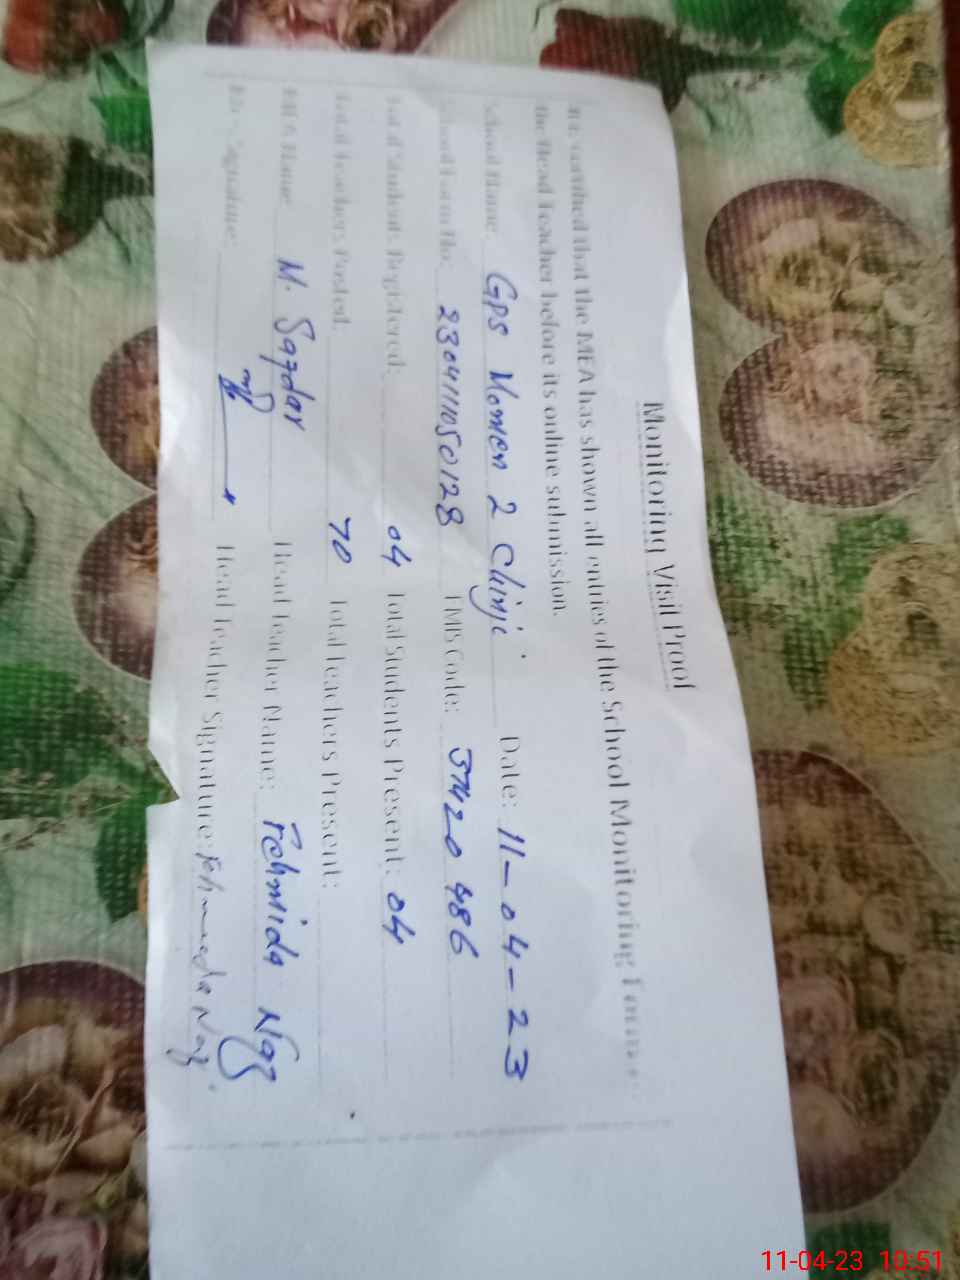 Monitoring Visit Proof
It is certified that the MEA has shown all entries of the School Monitoring Format
the Head Teacher before its online submission.
School Name: GPS Momen 2 Clinji Date: 11-04-23
School Form No: 2304111050128 EMIS Code: 37420486
Total Students Registered: 04 Total Students Present: 04
Total Teachers Posted: 70 Total Teachers Present:
MEA Name: M. Safdar Head Teacher Name: Fehmida Naz
MEA Signature: Head Teacher Signature: Fehmeda Naz
11-04-23 10:51